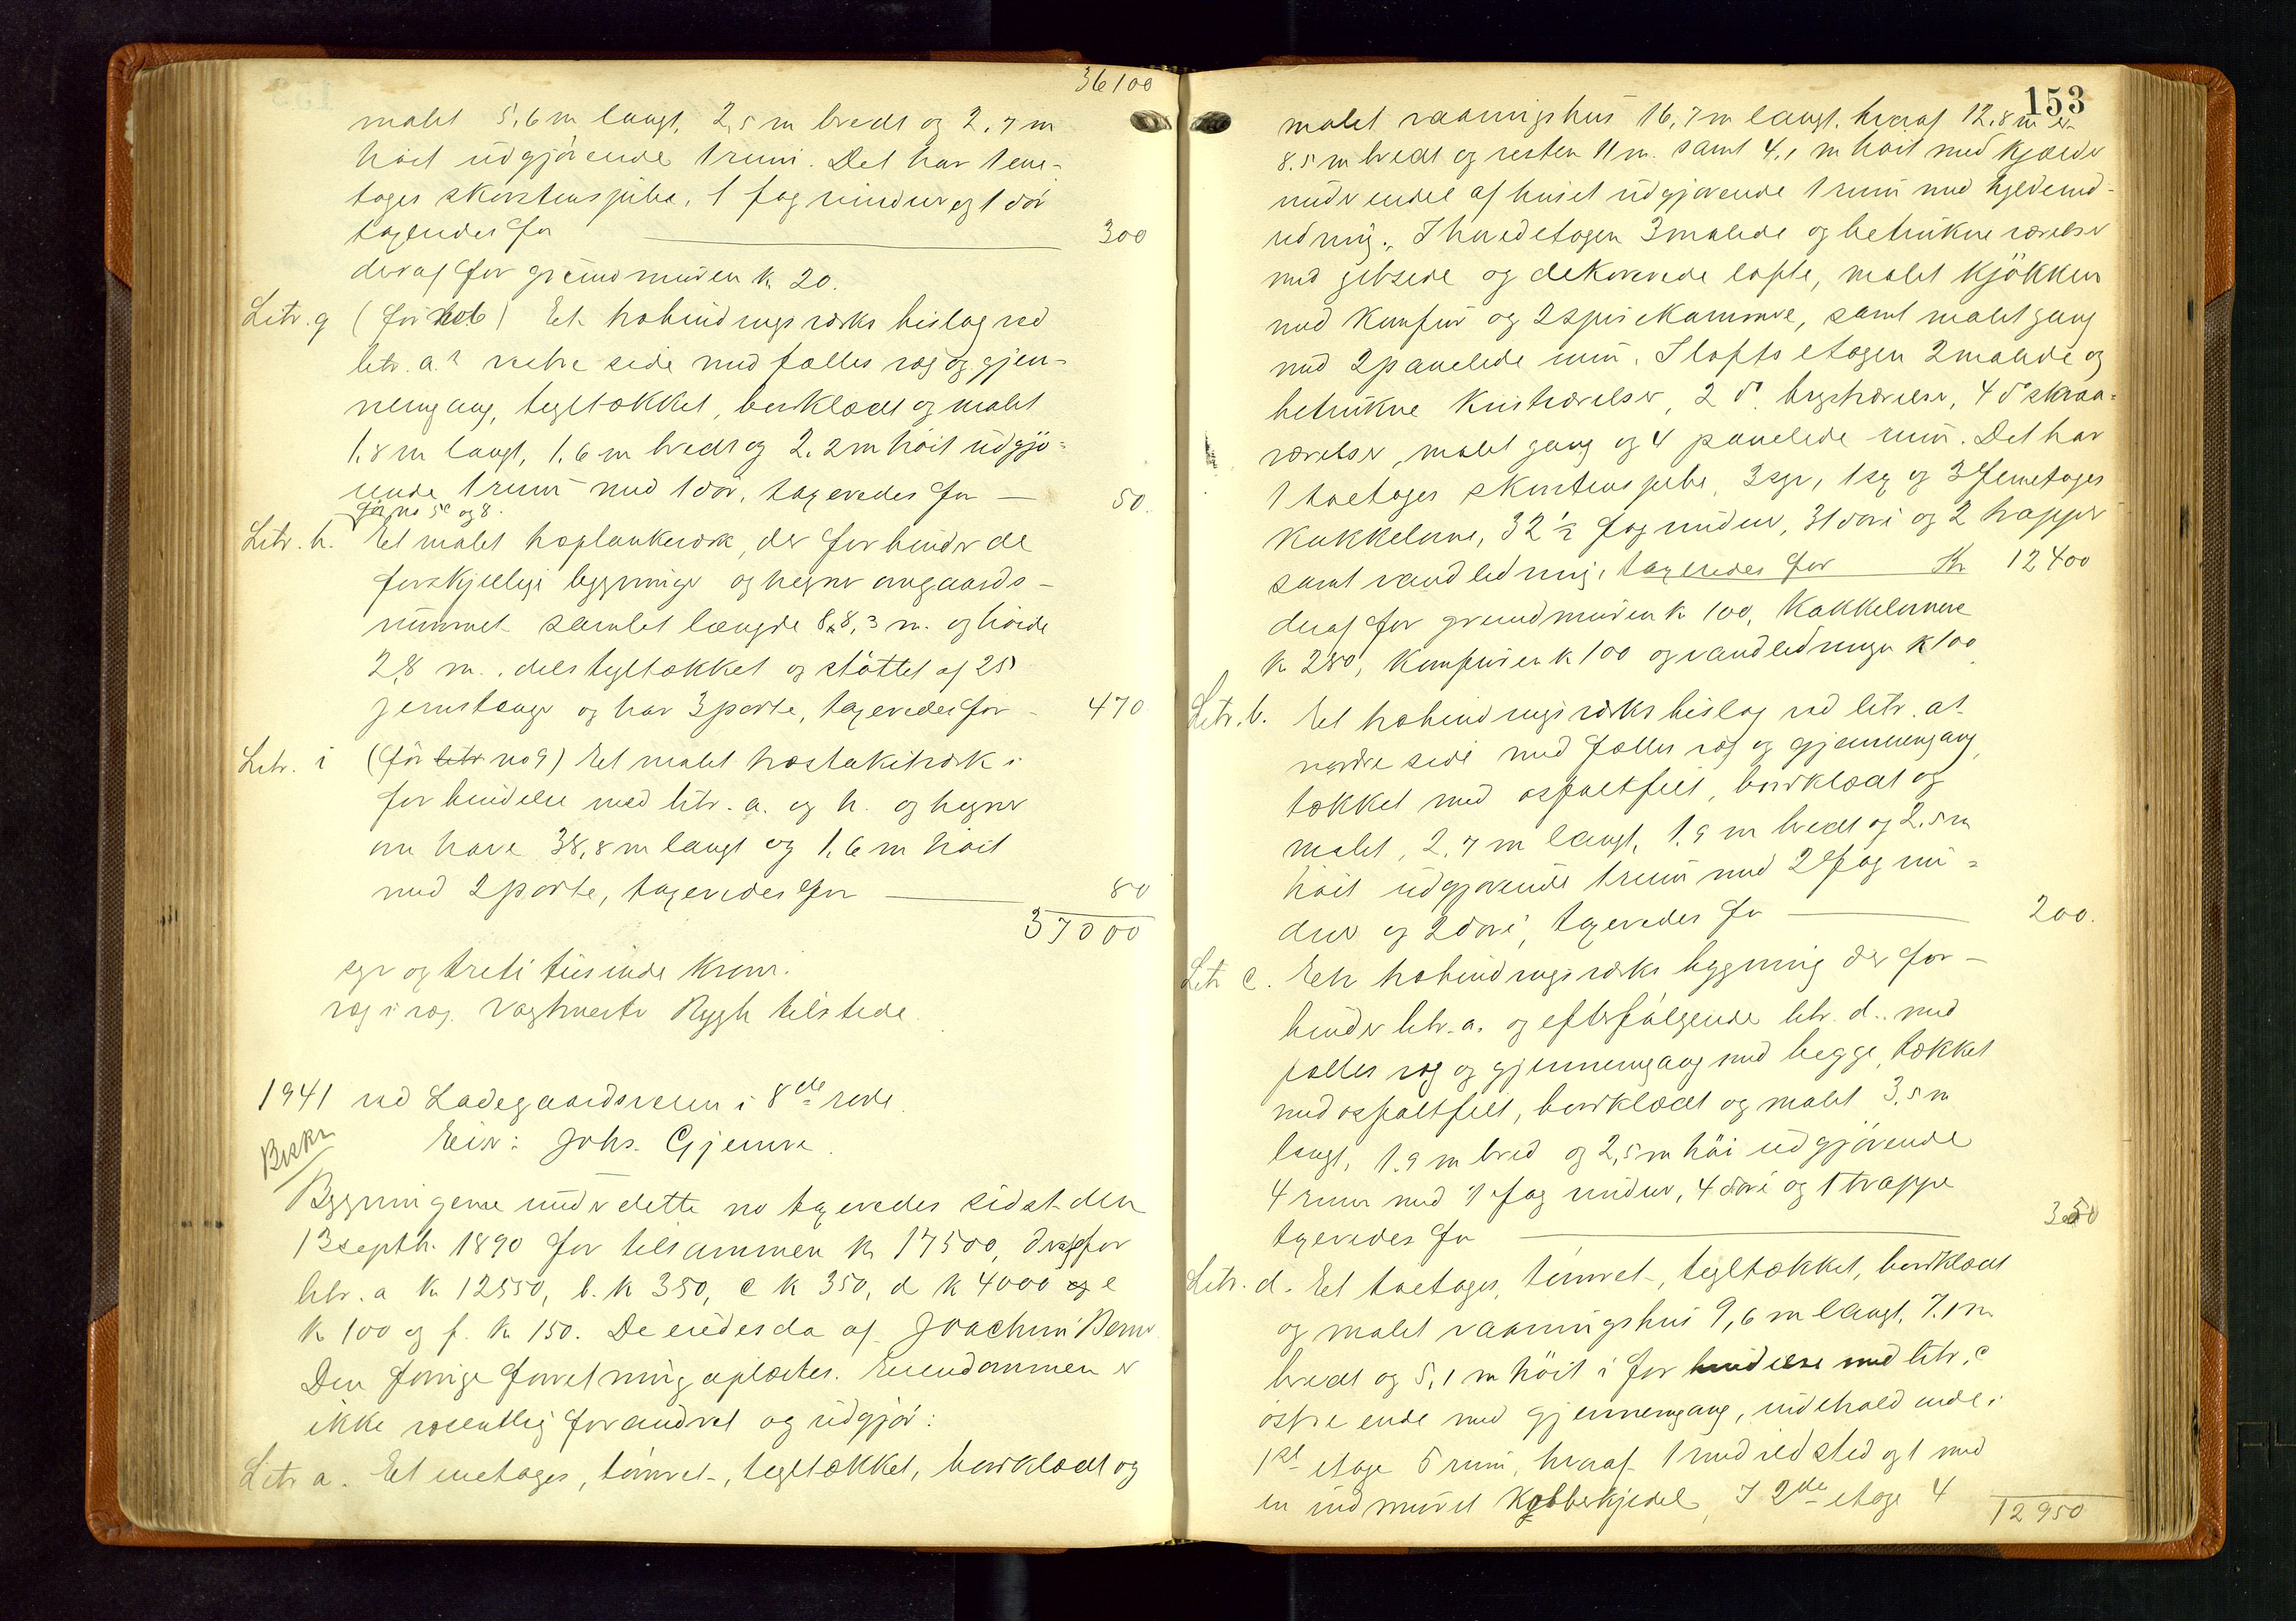 36100
malet 5,6 m langt, 2,5 m bredt og 2,7 m
høit udgjørende 1 rum. Det har 1 een-
tages skorstenspibe, 1 fag vinduer og 1 dør
taxeredes for 300
deraf for grundmuren k. 20.
Litr. g (før no 6) Et trebindingsværks bislag ved
litr. a.s vestre side med fælles væg og gjen-
nemgang, tegltækket, bordklædt og malet
1,8 m langt, 1,6 m bredt og 2,2 m høit udgjø-
rende 1 rum med 1 dør, taxeredes for 50.
før no 5c og 8.
Litr. h. Et malet træplankeværk, der forbinder de
forskjellige bygninger og hegner om gaards-
rummet samlet længde 88,3 m. og høide
2,8 m., dels tegltækket og støttet af 25
jernstænger og har 3 porte, taxeredes for 470
Litr. i (før litr no 9) Et malet træstakitværk i
forbindelse med litr. a. og h. og hegner
om have 38,8 m langt og 1,6 m høit
med 2 porte, taxeredes for 80
37000
syv og treti tusinde kroner.
væg i væg. Vagtmester Rygh tilstede.
1941 ved Ladegaardsveien i 8de rode.
Beskr
Eier: Johs. Gjemre.
Bygningerne under dette no taxeredes sidst den
13 septb. 1890 for tilsammen k. 17500, deraf for
litr. a k. 12550, b. k 350, c k 350, d k 4000 og e
k 100 og f. k 150. De eiedes da af Joachim Berner
Den forrige forretning oplæstes. Eiendommen er
ikke væsentlig forandret og udgjør:
Litr a. Et enetages, tømret, tegltækket, bordklædt og
153
malet vaaningshus 16,7 m langt, hvoraf 12,8 m er
8.5 m bredt og resten 11 m. samt 4,1 m høit med kjælder
under endel af huset udgjørende 1 rum med kjelderned-
redning. I hovedetagen 3 malede og betrukne værelser
med gibsede og dekorerede lofte, malet kjøkken
med komfur og 2 spisekammere, samt malet gang
med 2 panelede rum. I loftsetagen 2 malede og
betrukne kvistværelser, 2 do. brystværelser, 4 do skraa-
værelser, malet gang og 4 panelede rum. Det har
1 toetages skorstenspibe, 3 syv, 1 sex og 3 femetages
kakkelovne, 32 ½ fag vinduer, 31 døre og 2 trapper
samt vandledning, taxeredes for Kr 12400
deraf for grundmuren k 100, kakkelovnene
k 280, komfuren k 100 og vandledningen k 100
Litr. b. Et trebindingsværks bislag ved litr. as
nordre side med fælles væg og gjennemgang,
tækket med asfaltfilt, bordklædt og
malet, 2,7 m langt, 1.9 m bredt og 2.5 m
høit udgjørende 1 rum med 2 fag vin-
duer og 2 døre, taxeredes for 200.
Litr c. En trebindingsværks bygning der for-
binder litr. a. og efterfølgende litr. d. med
fælles væg og gjennemgang med begge, tækket
med asfaltfilt, bordklædt og malet 3,5 m
langt, 1.9 m bred og 2,5 m høi udgjørende
4 rum med 1 fag vinduer, 4 døre og 1 trappe
taxeredes for 350
Litr. d. Et toetages, tømret, tegltækket, bordklædt
og malet vaaningshus 9,6 m langt, 7.1 m
bredt og 5,1 m høit i forbindelse med litr. c
østre ende med gjennemgang, indeholdende i
1ste etage 5 rum, hvoraf 1 med ildsted og 1 med
en indmuret kobberkjedel, I 2den etage 4
12950